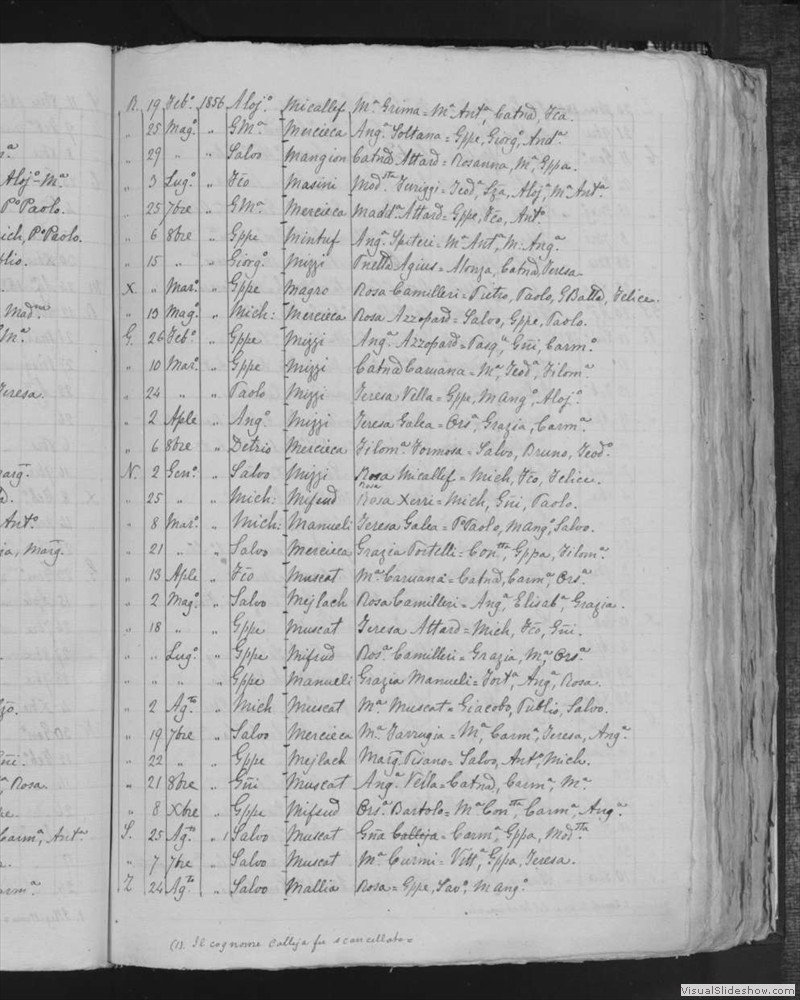 Aloj-Mª
Pº Paolo.
ich, Pº Paolo.
blio.
Madne
Mª
Teresa.
marg̃.
Antº
ia, Marg̃.
Gñi.
ª Rosa
Carmª, Antª
R. 19 Febº 1856 Alojº Micallef Mª Grima = Mª Antª, Catnd, Fca.
" 25 Magº " GMª Mercieca Angª Soltana = Gppe, Giorgº, Andª.
" 29 " " Salvo Mangion Catnd Attard = Rosanna, Mª, Gppa.
" 3 Lugº " Fco Masini Modtta Teod, Aloj, Mª Antª
" 25 7bre " GMª Mercieca Maddª Attard = Gppe, Fco, Antº
" 6 8bre " Gppe Mintuf Angª Spiteri = Mª Antª, M. Angª
" 15 " " Giorgº Mizzi Agius = Catnd, Teresa
X " Marº " Gppe Magro Rosa Camilleri = Pietro, Paolo, GBatta, Felice.
" 13 Magº " Mich: Mercieca Rosa Azzopard = Salvo, Gppe, Paolo.
G. 26 Febº " Gppe Mizzi Angª Azzopard = Pasqª, Gñi, Carmº.
" 10 Marº " Gppe Mizzi Catnd Caruana = Mª, Teodª, Filomª
" 24 " " Paolo Mizzi Teresa Vella = Gppe, M Angº, Alojº.
" 2 Aple " Angº Mizzi Teresa Galea = Orsª, Grazia, Carmª.
" 6 8bre " Detrio Mercieca Filomª Formosa = Salvo, Bruno, Teodº.
N. 2 Genº " Salvo Mizzi Rosa Micallef = Mich, Fco, Felice.
" 25 " " Mich: Mifsud Rosa Rosa Xerri = Mich, Gñi, Paolo.
" 8 Marº " Mich: Manueli Teresa Galea = Pº Paolo, M Angº, Salvo.
" 21 " " Salvo Mercieca Grazia Portelli = Contta, Gppa, Filomª
" 13 Aple " Fco Muscat Mª Caruana = Catnd, Carmª, Orsª.
" 2 Magº " Salvo Mejlach Rosa Camilleri = Angª, Elisabª, Grazia.
" 18 " " Gppe Muscat Teresa Attard = Mich, Fco, Gñi.
" " Lugº " Gppe Mifsud Rosª Camilleri = Grazia, Mª, Orsª.
" " " Gppe Manueli Grazia Manueli = Fortª, Angª, Rosa.
" 2 Agto " Mich Muscat Mª Muscat = Giacobo, Publio, Salvo.
" 19 7bre " Salvo Mercieca Mª Farrugia = Mª, Carmª, Teresa, Angª
" 22 " " Gppe Mejlach Marg̃. Pisano = Salvo, Antº, Mich.
" 21 8bre " Gñi Muscat Angª Vella = Catnd, Carmª, Mª
" 8 Xbre " Gppe Mifsud Orsª Bartolo = Mª Contta, Carmª, Angª
S. 25 Agto " 1 Salvo Muscat Gña Calleja = Carmª, Gppa, Modtta
" 7 7bre " Salvo Muscat Mª Curmi = Vittª, Gppa, Teresa.
Z 24 Agto " Salvo Mallia Rosa = Gppe, Savº, M Angº.
(1). Il cognome Calleja fu scancellato =
VisualSlideshow.com